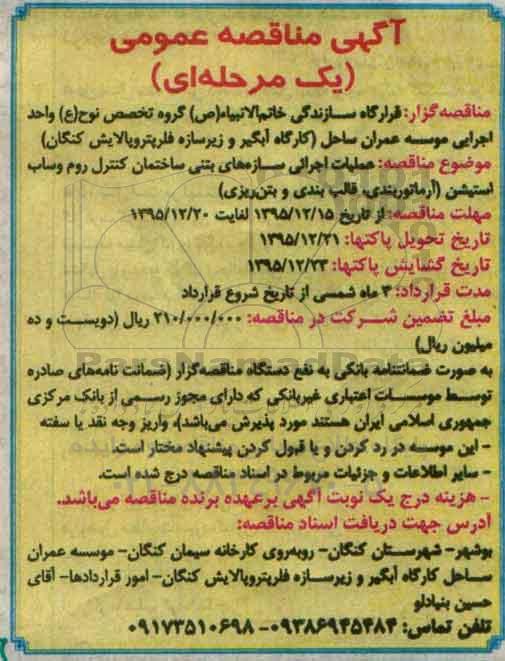 آگهی مناقصه عمومی
(یک مرحله‌ای)
مناقصه‌گزار: قرارگاه سازندگی خاتم‌الانبیاء(ص) گروه تخصص نوح(ع) واحد
اجرایی موسسه عمران ساحل (کارگاه آبگیر و زیرسازه فلرپتروپالایش کنگان)
موضوع مناقصه: عملیات اجرائی سازه‌های بتنی ساختمان کنترل روم وساب
استیشن (آرماتوربندی، قالب بندی و بتن‌ریزی)
مهلت مناقصه: از تاریخ ۱۳۹۵/۱۲/۱۵ لغایت ۱۳۹۵/۱۲/۲۰
تاریخ تحویل پاکتها: ۱۳۹۵/۱۲/۲۱
تاریخ گشایش پاکتها: ۱۳۹۵/۱۲/۲۳
مدت قرارداد: ۳ ماه شمسی از تاریخ شروع قرارداد
مبلغ تضمین شرکت در مناقصه: ۲۱۰/۰۰۰/۰۰۰ ریال (دویست و ده
میلیون ریال)
ParsNamadData
به صورت ضمانتنامه بانکی به نفع دستگاه مناقصه‌گزار (ضمانت نامه‌های صادره
توسط موسسات اعتباری غیربانکی که دارای مجوز رسمی از بانک مرکزی
جمهوری اسلامی ایران هستند مورد پذیرش می‌باشد)، واریز وجه نقد یا سفته
- این موسسه در رد کردن و یا قبول کردن پیشنهاد مختار است.
- سایر اطلاعات و جزئیات مربوط در اسناد مناقصه درج شده است.
- هزینه درج یک نوبت آگهی برعهده برنده مناقصه می‌باشد.
آدرس جهت دریافت اسناد مناقصه:
بوشهر- شهرستان کنگان- روبه‌روی کارخانه سیمان کنگان- موسسه عمران
ساحل کارگاه آبگیر و زیرسازه فلرپتروپالایش کنگان- امور قراردادها- آقای
حسین بنیادلو
تلفن تماس: ۰۹۳۸۶۹۴۵۴۸۴- ۰۹۱۷۳۵۱۰۶۹۸